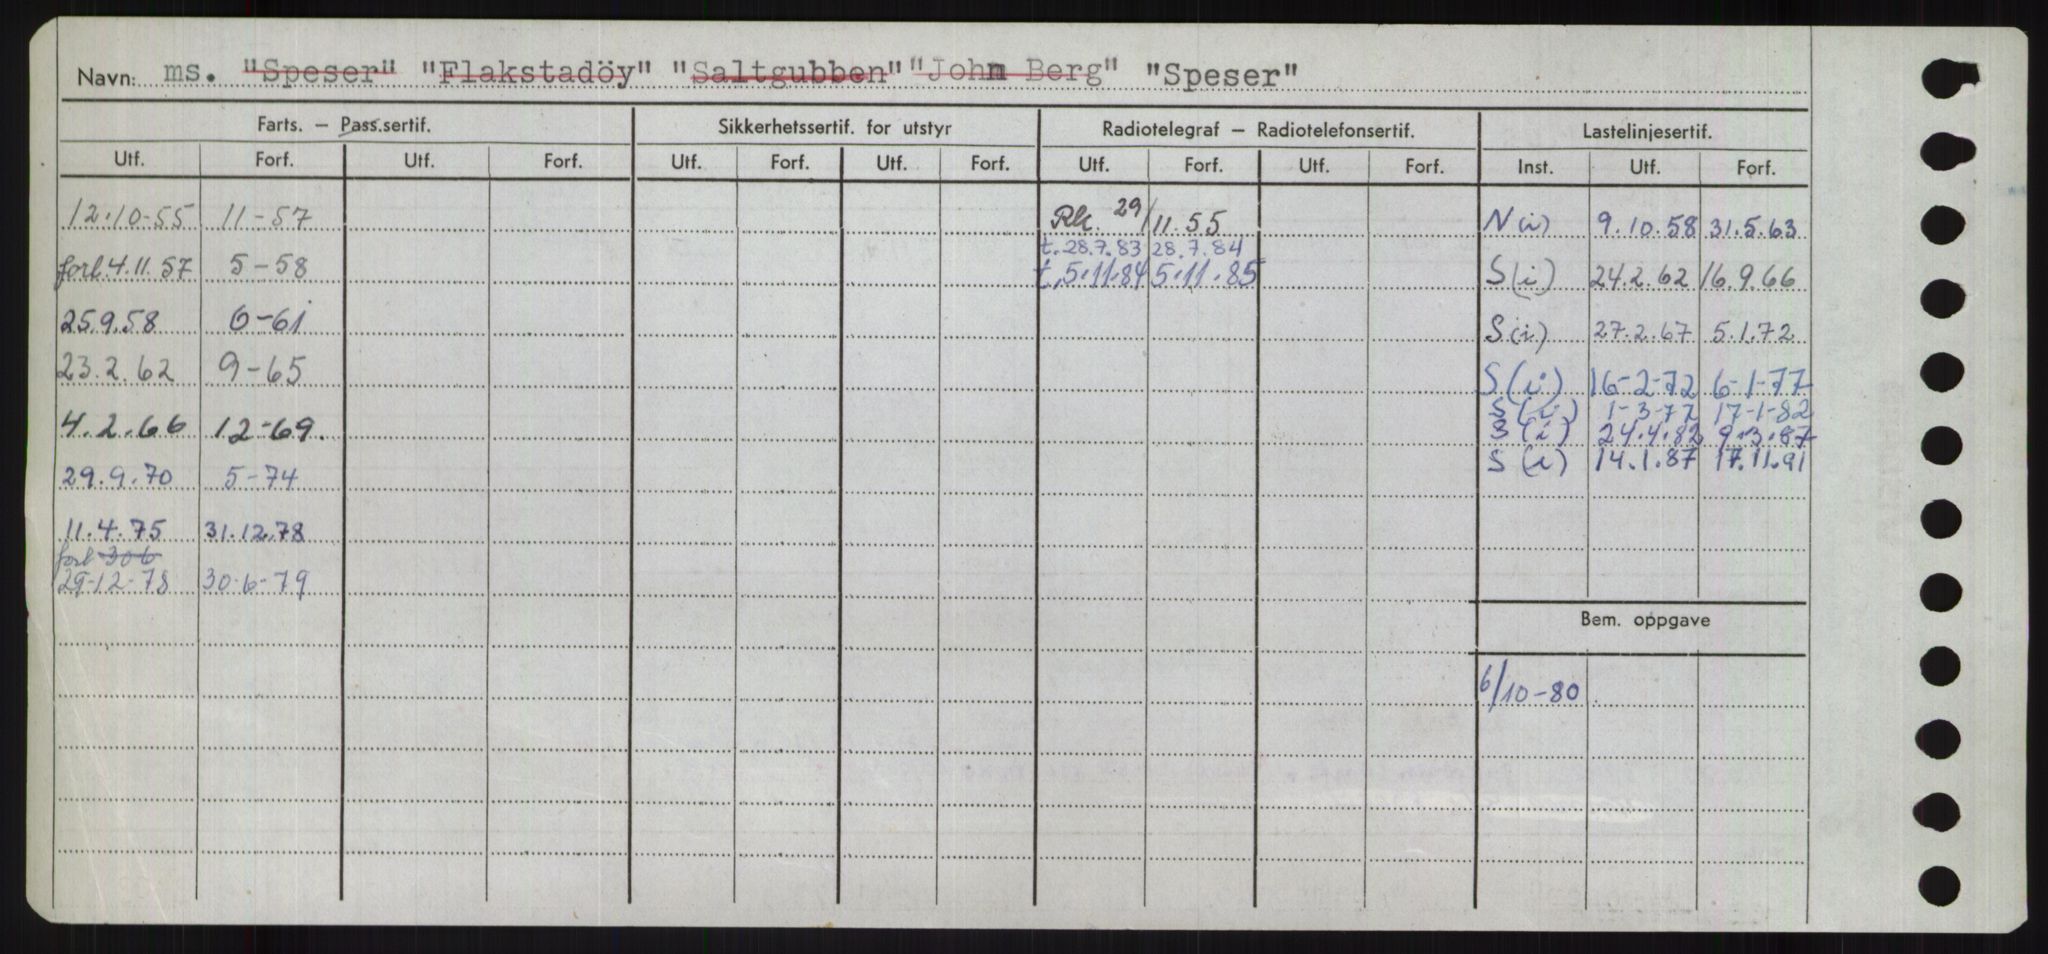 Navn: ms. "Speser" "Flakstadöy" "Saltgubben" "John Berg" "Speser"
Farts. — Pass.sertif. Sikkerhetssertif. for utstyr Radiotelegraf — Radiotelefonsertif. Lastelinjesertif.
Utf. Forf. Utf. Forf. Utf. Forf. Utf. Forf. Utf. Forf. Utf. Forf. Inst. Utf. Forf.
12.10-55 11-57 Rk. 29/11.55 N(i) 9.10.58 31.5.63
t. 28.7.83 28.7.84
forl. 4.11.57 5-58 t. 5.11.84 5.11.85 S(i) 24.2.62 16.9.66
25.9.58 6-61 S(i) 27.2.67 5.1.72
23.2.62 9-65 S(i) 16-2-72 6-1-77
S(i) 1-3-77 17-1-82
4.2.66 12-69. S(i) 24.4.82 9.3.87
29.9.70 5-74 S(i) 14.1.87 17.11.91
11.4.75 31.12.78
forl 306
29-12-78 30-6-79
Bem. oppgave
6/10-80